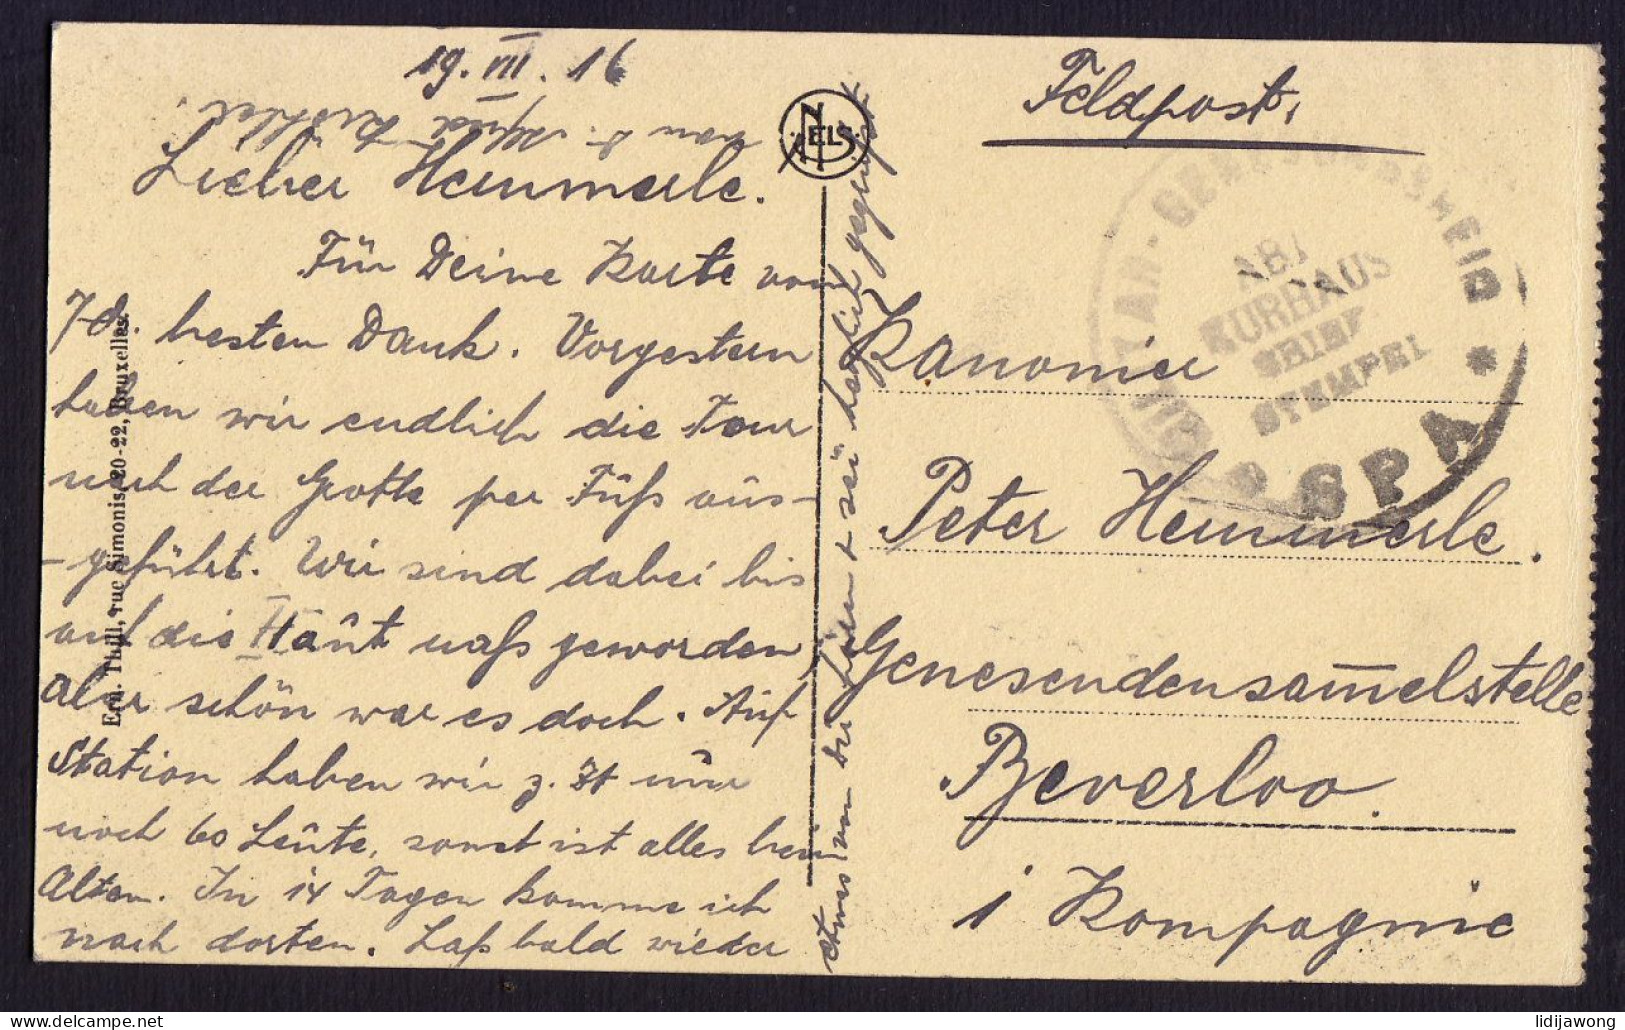 19. VII. 16
Lieber Hemmerle.
Für Deine Karte vom
7. ds. besten Dank. Vorgestern
haben wir endlich die Tour
nach der Grotte per Fuß aus-
-geführt. Wir sind dabei bis
auf die Haut naß geworden,
aber schön war es doch. Auf
Station haben wir z. Zt nur
noch 60 Leute, sonst ist alles beim
Alten. In 14 Tagen komme ich
nach dorten. Laß bald wieder
etwas von dir hören & sei herzlich gegrüßt
von d. Alfred
NELS
Ern. Thill, rue Simonis, 20-22, Bruxelles.
Feldpost.
Kanonier
Peter Hemmerle.
Genesendensammelstelle
Beverloo.
1 Kompagnie
GENESUNGSHEIM
ABT
KURHAUS
BRIEF
STEMPEL
* SPA *
lidijawong